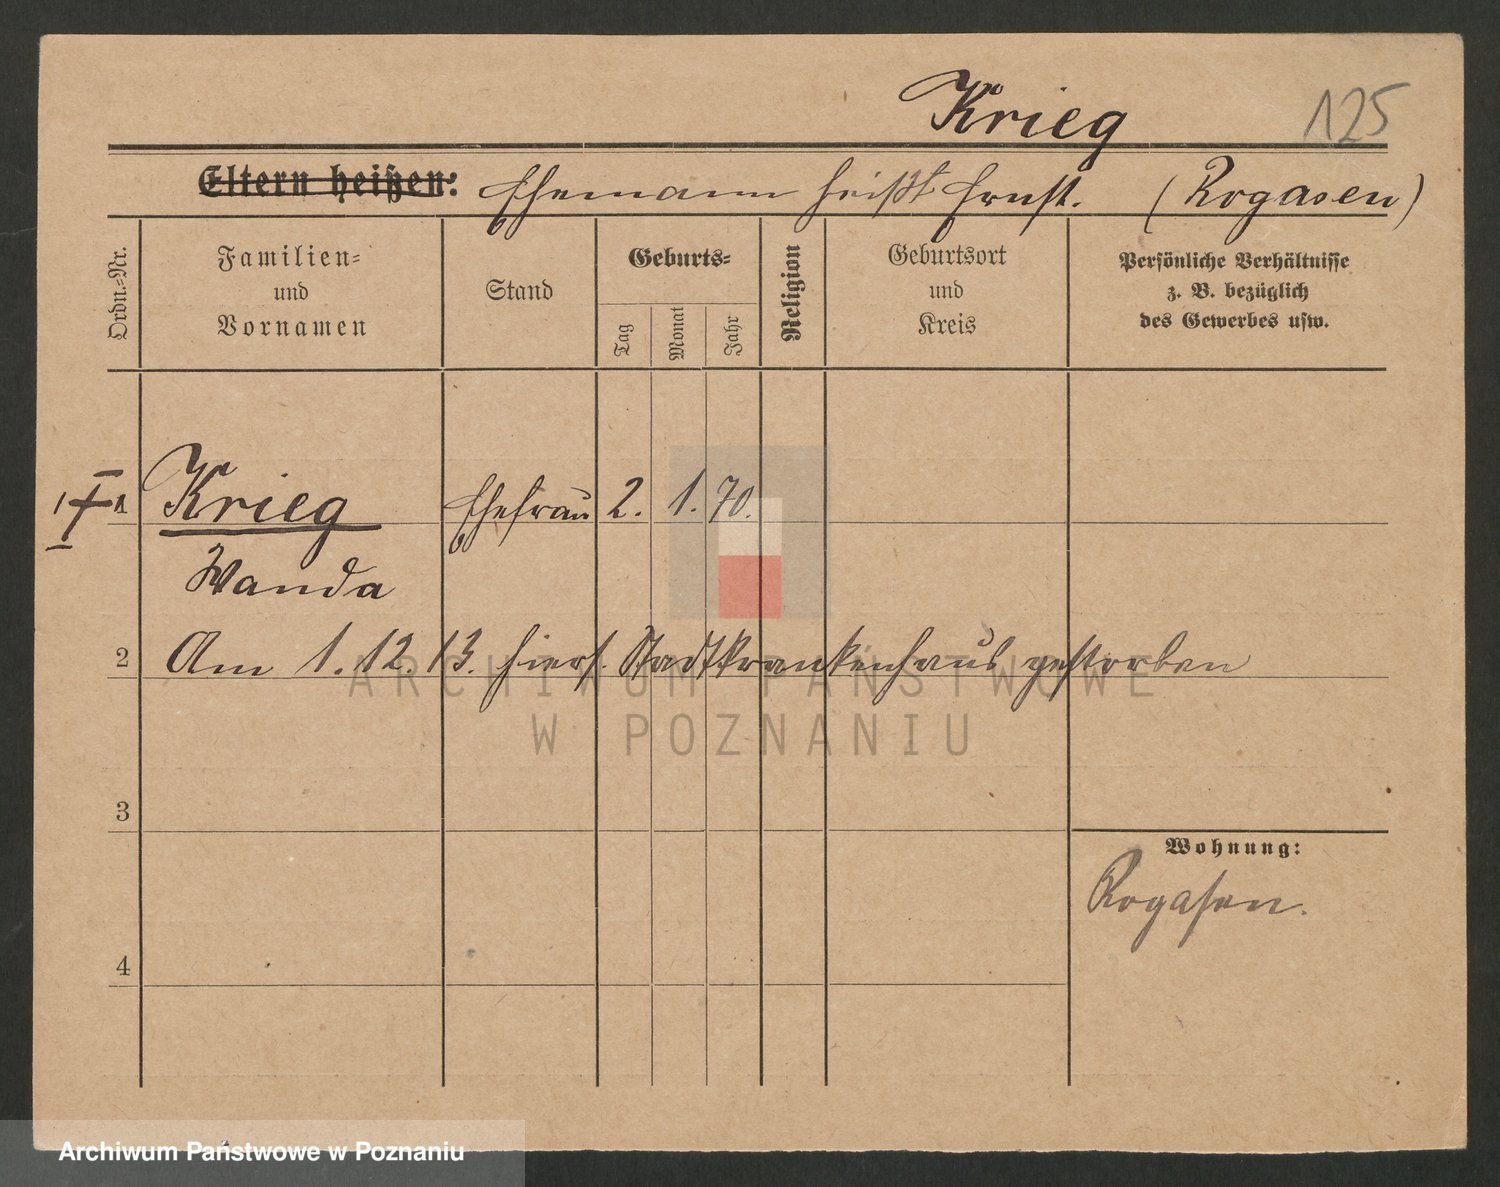 Krieg 125
Eltern heißen: Ehemann heißt Ernst. (Rogasen)
Ordn.-Nr. Familien- und Vornamen Stand Geburts- Tag Monat Jahr Religion Geburtsort und Kreis Persönliche Verhältnisse z. B. bezüglich des Gewerbes usw.
1 Krieg Ehefrau 2. 1. 70.
Wanda
2 Am 1.12.13. hiers. Stadtkrankenhaus gestorben
ARCHIWUM PAŃSTWOWE
W POZNANIU
3
Wohnung:
Rogasen.
4
Archiwum Państwowe w Poznaniu